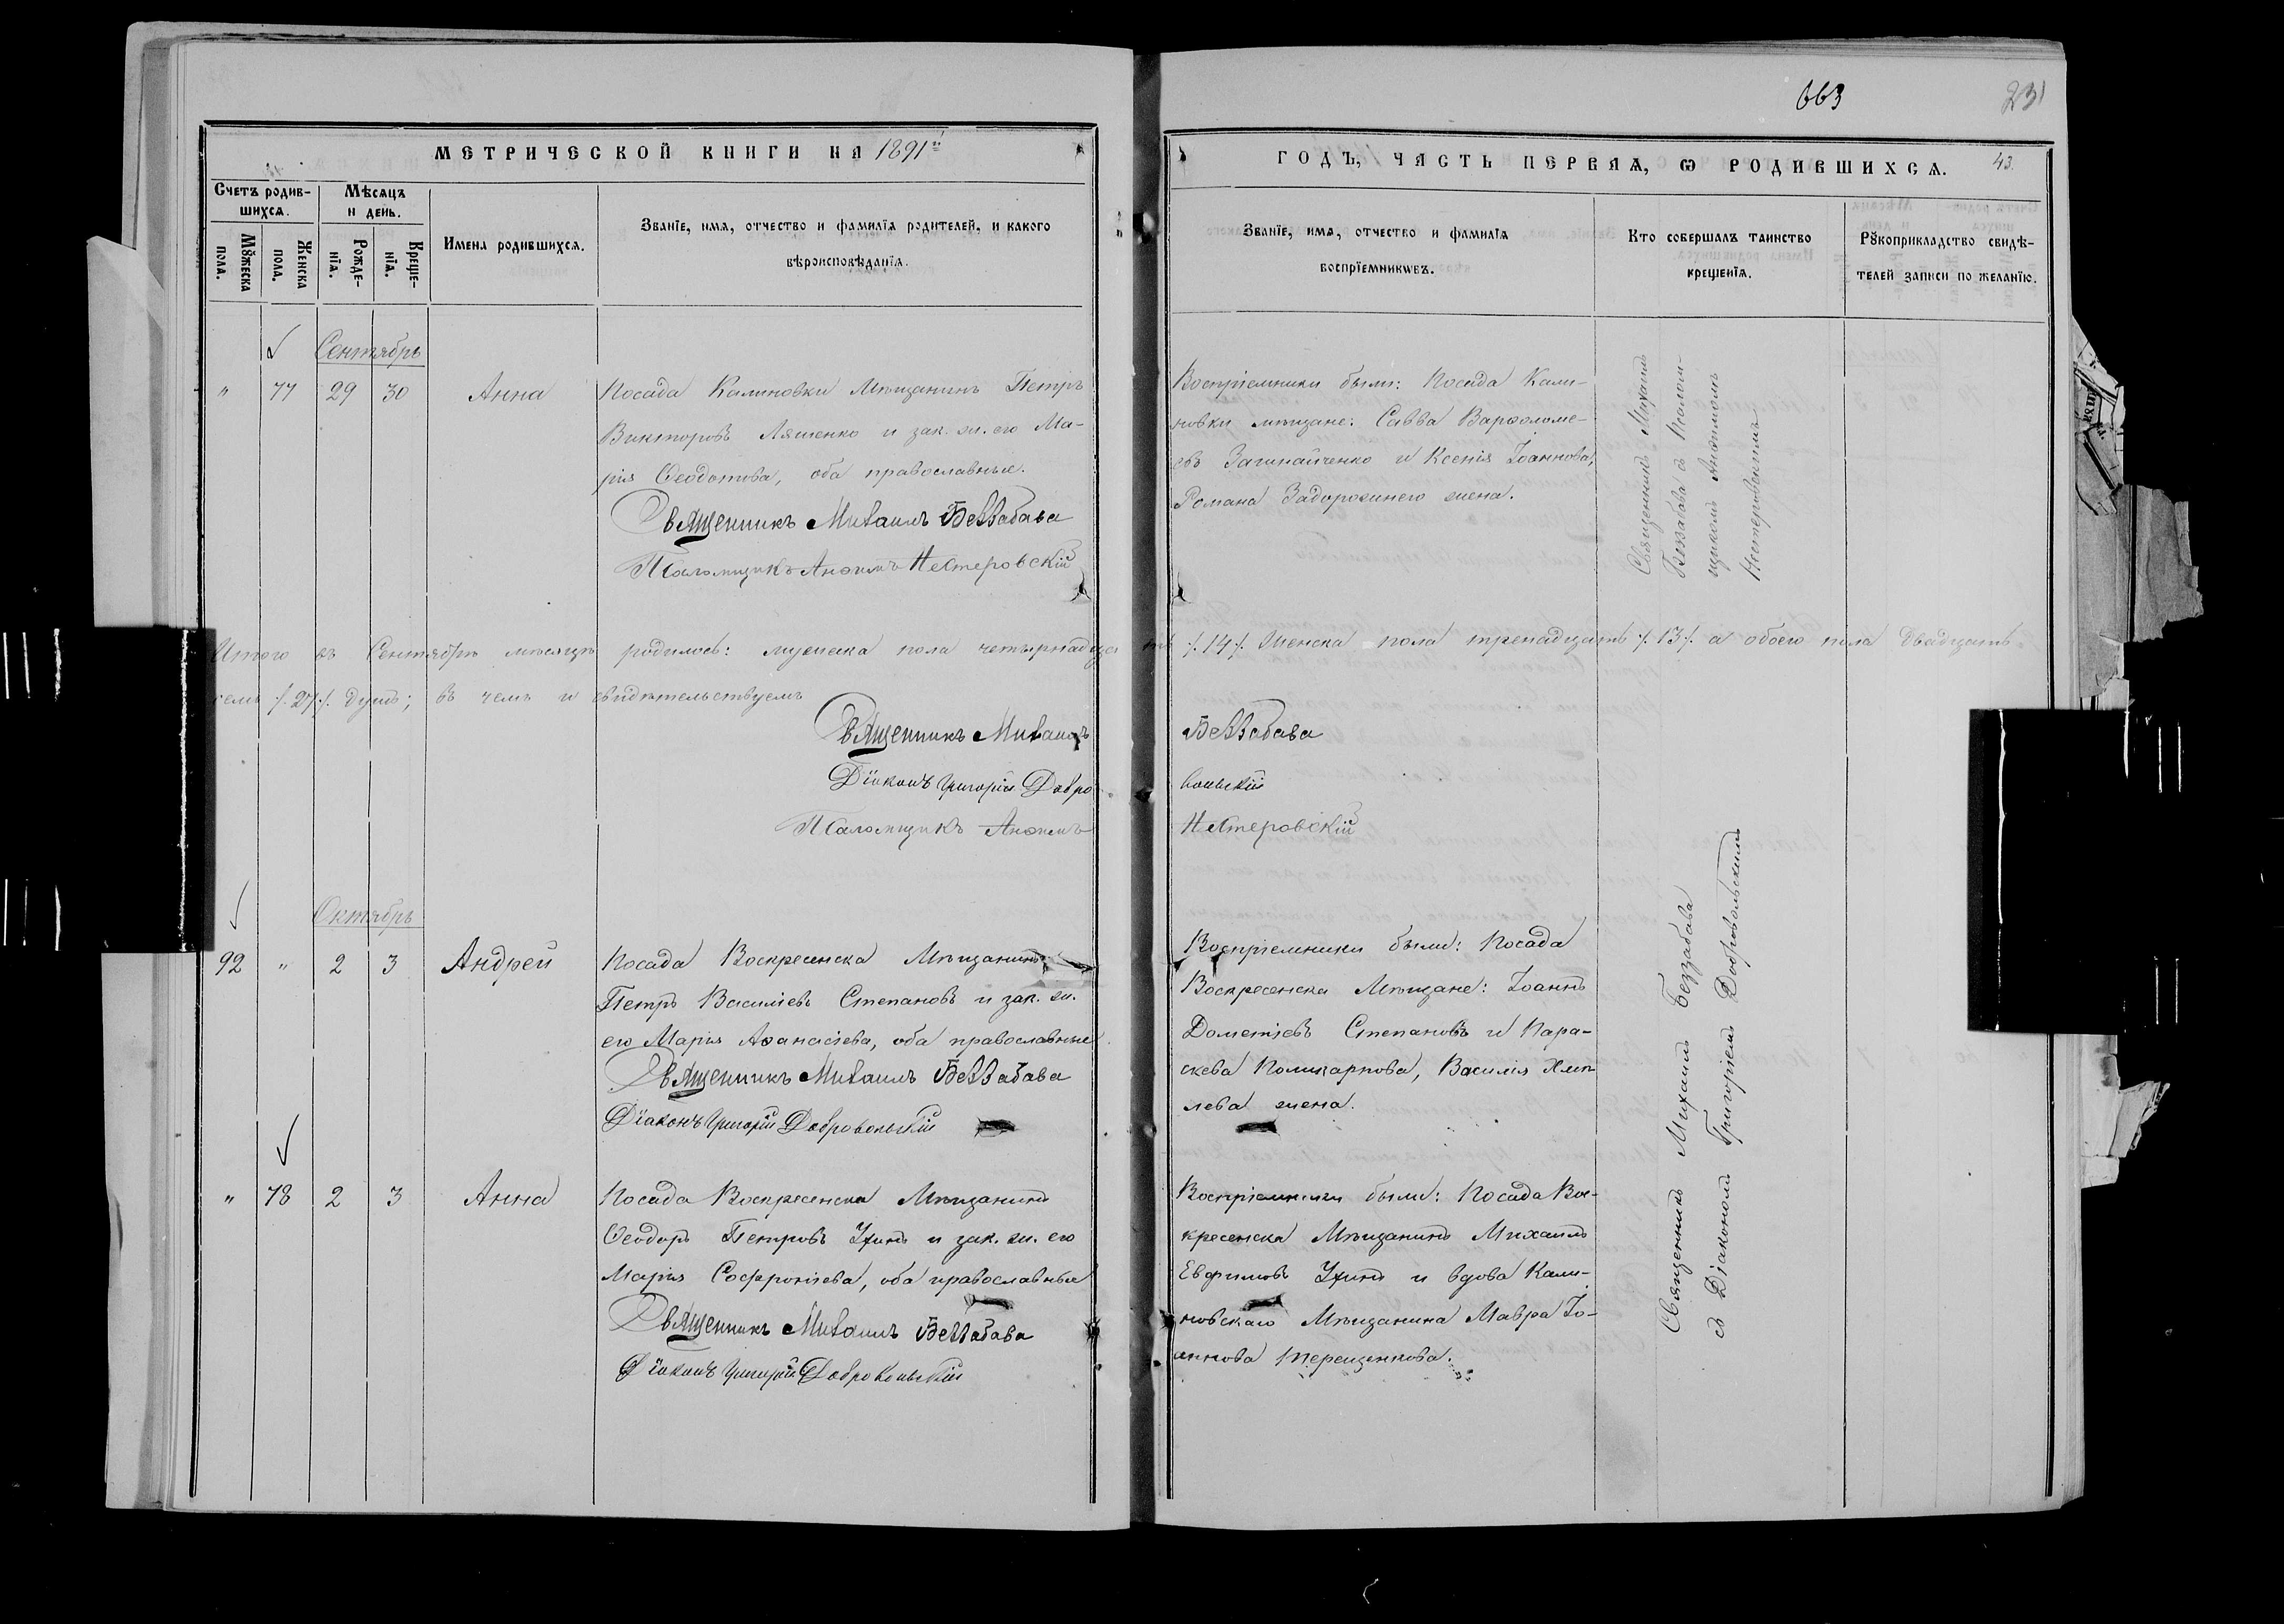 663
231
МЕТРИЧЕСКОЙ КНИГИ НА 1891й
Счетъ родив-
шихся.
Мѣсяцъ
и день.
Мужеска
пола.
Женска
пола.
Рожде-
нїя.
Креще-
нїя.
Имена родившихся.
Званїе, имя, отчество и фамилїя родителей, и какого
вѣроисповѣданїя.
ГОДЪ, ЧАСТЬ ПЕРВАЯ, Ѡ РОДИВШИХСЯ. 43.
Званїе, имя, отчество и фамилїя
воспрїемникѡвъ.
Кто совершалъ таинство
крещенїя.
Рукоприкладство свидѣ-
телей записи по желанїю.
Сентябрь
" 77 29 30 Анна
Посада Калиновки Мѣщанинъ Петръ
Викторовъ Ляшенко и зак. ж. его Ма-
рія Ѳеодотова, оба православные.
Священникъ Михаилъ Беззабава
Псаломщикъ Анѳимъ Нестеровскій
Воспріемники были: Посада Кали-
новки мѣщане: Савва Варѳоломе-
евъ Загинайченко и Ксенія Іоаннова,
Романа Задорожнего жена.
Священникъ Михаилъ
Беззабава съ Псалом-
щикомъ Анѳимомъ
Нестеровскимъ
Итого въ Сентябрѣ мѣсяцѣ родилось: мужеска пола четырнадцать /.14./ женска пола тренадцать /.13./. а обоего пола двадцать
семь /.27./. душъ; въ чемъ и свидѣтельствуемъ
Священникъ Михаилъ Беззабава
Діаконъ Григорій Добровольскій
Псаломщикъ Анѳимъ Нестеровскій
Октябрь
92 " 2 3 Андрей
Посада Воскресенска Мѣщанинъ
Петръ Василіевъ Степановъ и зак. ж.
его Марія Аѳанасіева, оба православные.
Священникъ Михаилъ Беззабава
Діаконъ Григорій Добровольскій
Воспріемники были: Посада
Воскресенска Мѣщане: Іоаннъ
Дометіевъ Степановъ и Пара-
скева Поликарпова, Василія
жена.
" 78 2 3 Анна
Посада Воскресенска Мѣщанинъ
Ѳеодоръ Петровъ и зак. ж. его
Марія Софроніева, оба православные
Священникъ Михаилъ Беззабава
Діаконъ Григорій Добровольскій
Воспріемники были: Посада Вос-
кресенска Мѣщанинъ Михаилъ
Евфимовъ и вдова Кали-
новскаго Мѣщанина Мавра Іо-
аннова Терещенкова.
Священникъ Михаилъ Беззабава
съ Діакономъ Григоріемъ Добровольскимъ